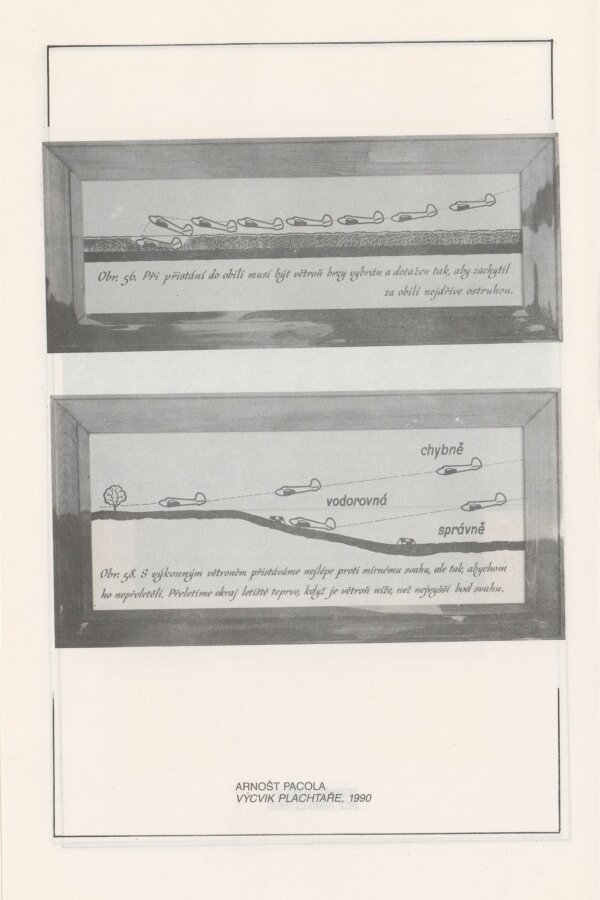 Obr. 56. Při přistání do obilí musí být větroň brzy vybrán a dotažen tak, aby zachytil
za obilí nejdříve ostruhou.
chybně
vodorovná
správně
Obr. 58. S výkonným větroněm přistáváme nejlépe proti mírnému svahu, ale tak, abychom
ho nepřeletěli. Přeletíme okraj letiště teprve, když je větroň níže, než nejvyšší bod svahu.
ARNOŠT PACOLA
VÝCVIK PLACHTAŘE, 1990